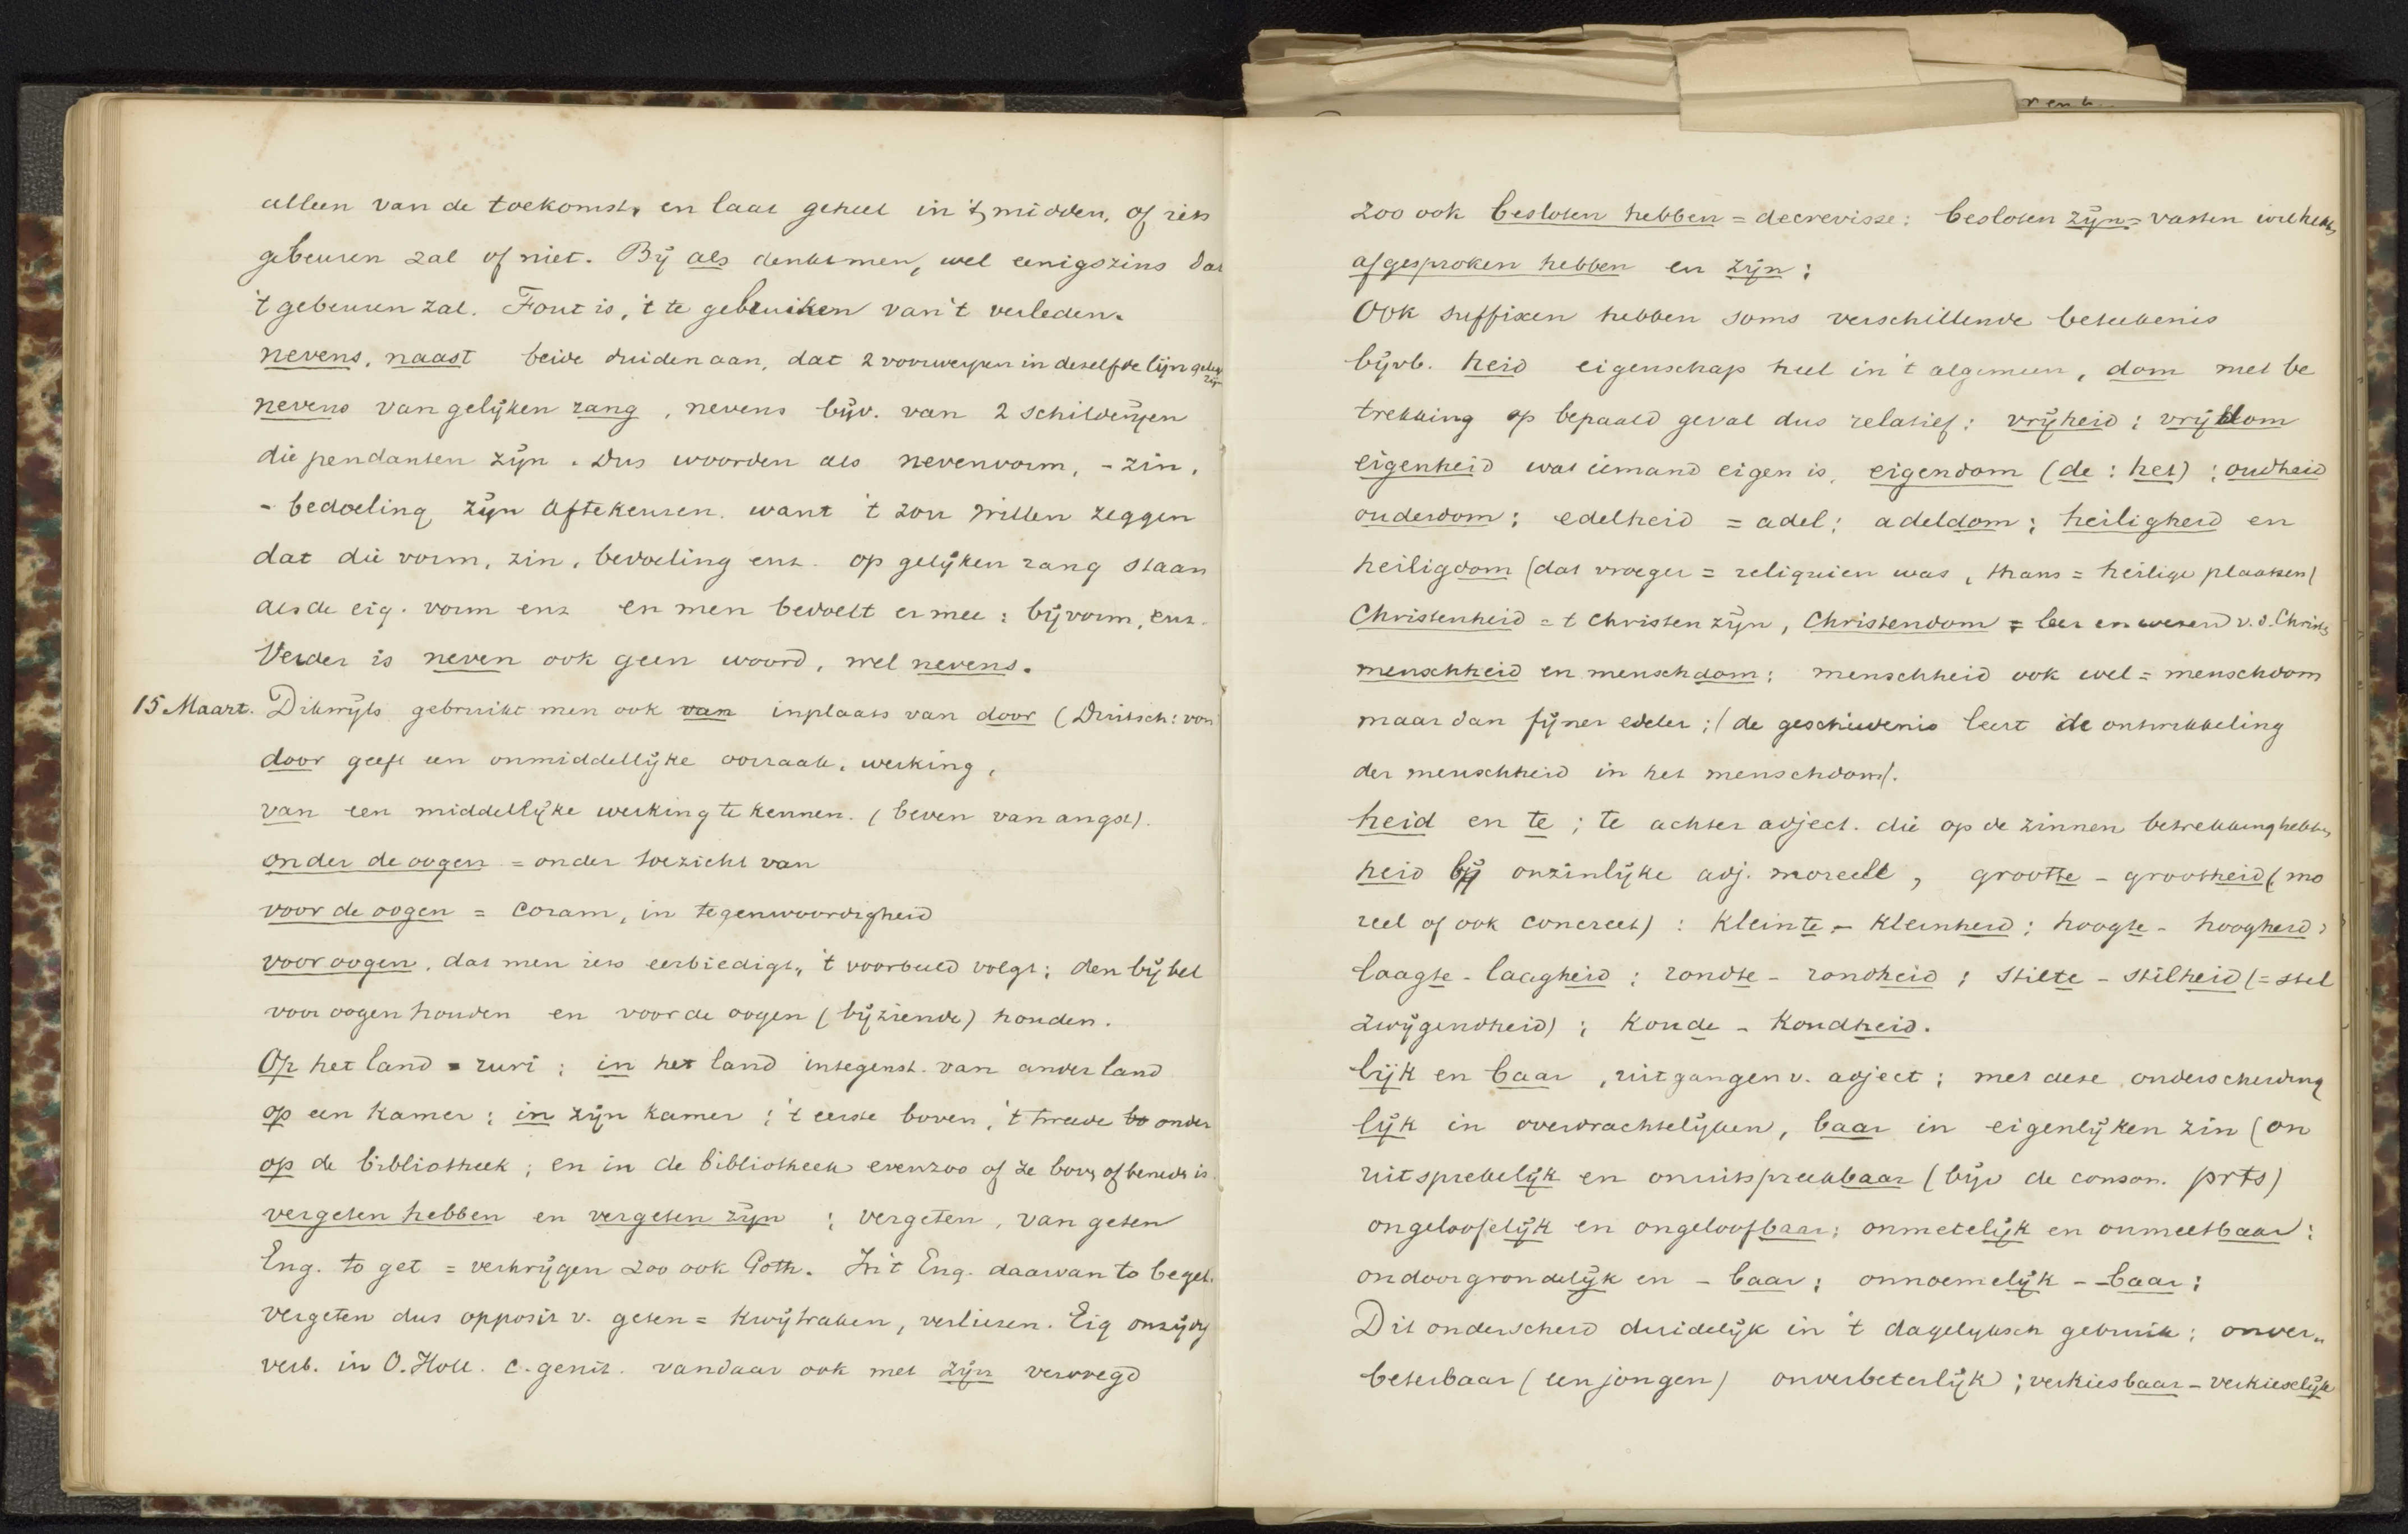 alleen van de toekomst, en laat geheel in 't midden, of iets
gebeuren zal of niet. Bij als denkt men, wel eenigszins dat
't gebeuren zal. Fout is, 't te gebruiken van 't verleden.
nevens, naast beide duiden aan, dat 2 voorwerpen in deselfde lijn geleg zijn
nevens van gelijken rang, nevens bijv. van 2 schilderijen
die pendanten zijn. Dus woorden als nevenvorm, -zin,
- bedoeling zijn aftekeuren. want 't zou willen zeggen
dat die vorm, zin, bedoeling enz. op gelijken rang staan
als de eig. vorm enz en men bedoelt er mee: bijvorm, enz.
Verder is neven ook geen woord, wel nevens.
15 Maart. Dikwijls gebruikt men ook van inplaats van door (Duitsch: von
door geeft een onmiddellijke oorzaak, werking,
van een middellijke werking te kennen. (beven van angst).
onder de oogen = onder toezicht van
voor de oogen = coram, in tegenwoordigheid
voor oogen, dat men iets eerbiedigt, 't voorbeeld volgt; den bijbel
voor oogen houden en voor de oogen (bijziende) houden.
Op het land = ruri; in het land integenst. van ander land
op een kamer; in zijn kamer; 't eerste boven, 't tweede bo onder
op de bibliotheek; en in de bibliotheek evenzoo of ze bov, of bened. is.
vergeten hebben en vergeten zijn; vergeten, van geten
Eng. to get = verkrijgen zoo ook Goth. In 't Eng. daarvan to beget.
vergeten dus opposit v. geten = kwijtraken, verliezen. Eig onzijdig
verb. in O. Holl. c. genit. vandaar ook met zijn vervoegd
zoo ook besloten hebben = decrevisse: besloten zijn = vasten wil hebb,
afgesproken hebben en zijn;
Ook suffixen hebben soms verschillende beteekenis
bijvb. heid eigenschap heel in 't algemeen, dom met be
trekking op bepaald geval dus relatief: vrijheid; vrijdom
eigenheid wat iemand eigen is, eigendom (de: het); oudheid
ouderdom; edelheid = adel; adeldom; heiligheid en
heiligdom (dat vroeger = reliquien was, thans = heilige plaatsen)
Christenheid = t Christen zijn, Christendom = leer en wezen v. d. Christ.
menschheid en menschdom; menschheid ook wel = menschdom
maar dan fijner edeler; (de geschiedenis leert de ontwikkeling
der menschheid in het menschdom).
heid en te; te achter adject. die op de zinnen betrekking hebben
heid bij onzinlijke adj. moreele, grootte - grootheid (mo
reel of ook concreet): kleinte - kleinheid; hoogte - hoogheid;
laagte - laagheid; rondte - rondheid; stilte - stilheid (= stil
zwijgendheid); koude - koudheid.
lijk en baar, uitgangen v. adject; met deze onderscheiding
lijk in overdrachtelijken, baar in eigenlijken zin (on
uitsprekelijk en onuitspreekbaar (bijv de conson. prts)
ongelooflijk en ongeloofbaar; onmetelijk en onmeetbaar:
ondoorgrondelijk en - baar; onnoemelijk - baar;
Dit onderscheid duidelijk in 't dagelijksch gebruik; onver„
beterbaar (een jongen) onverbeterlijk; verkiesbaar - verkieselijk